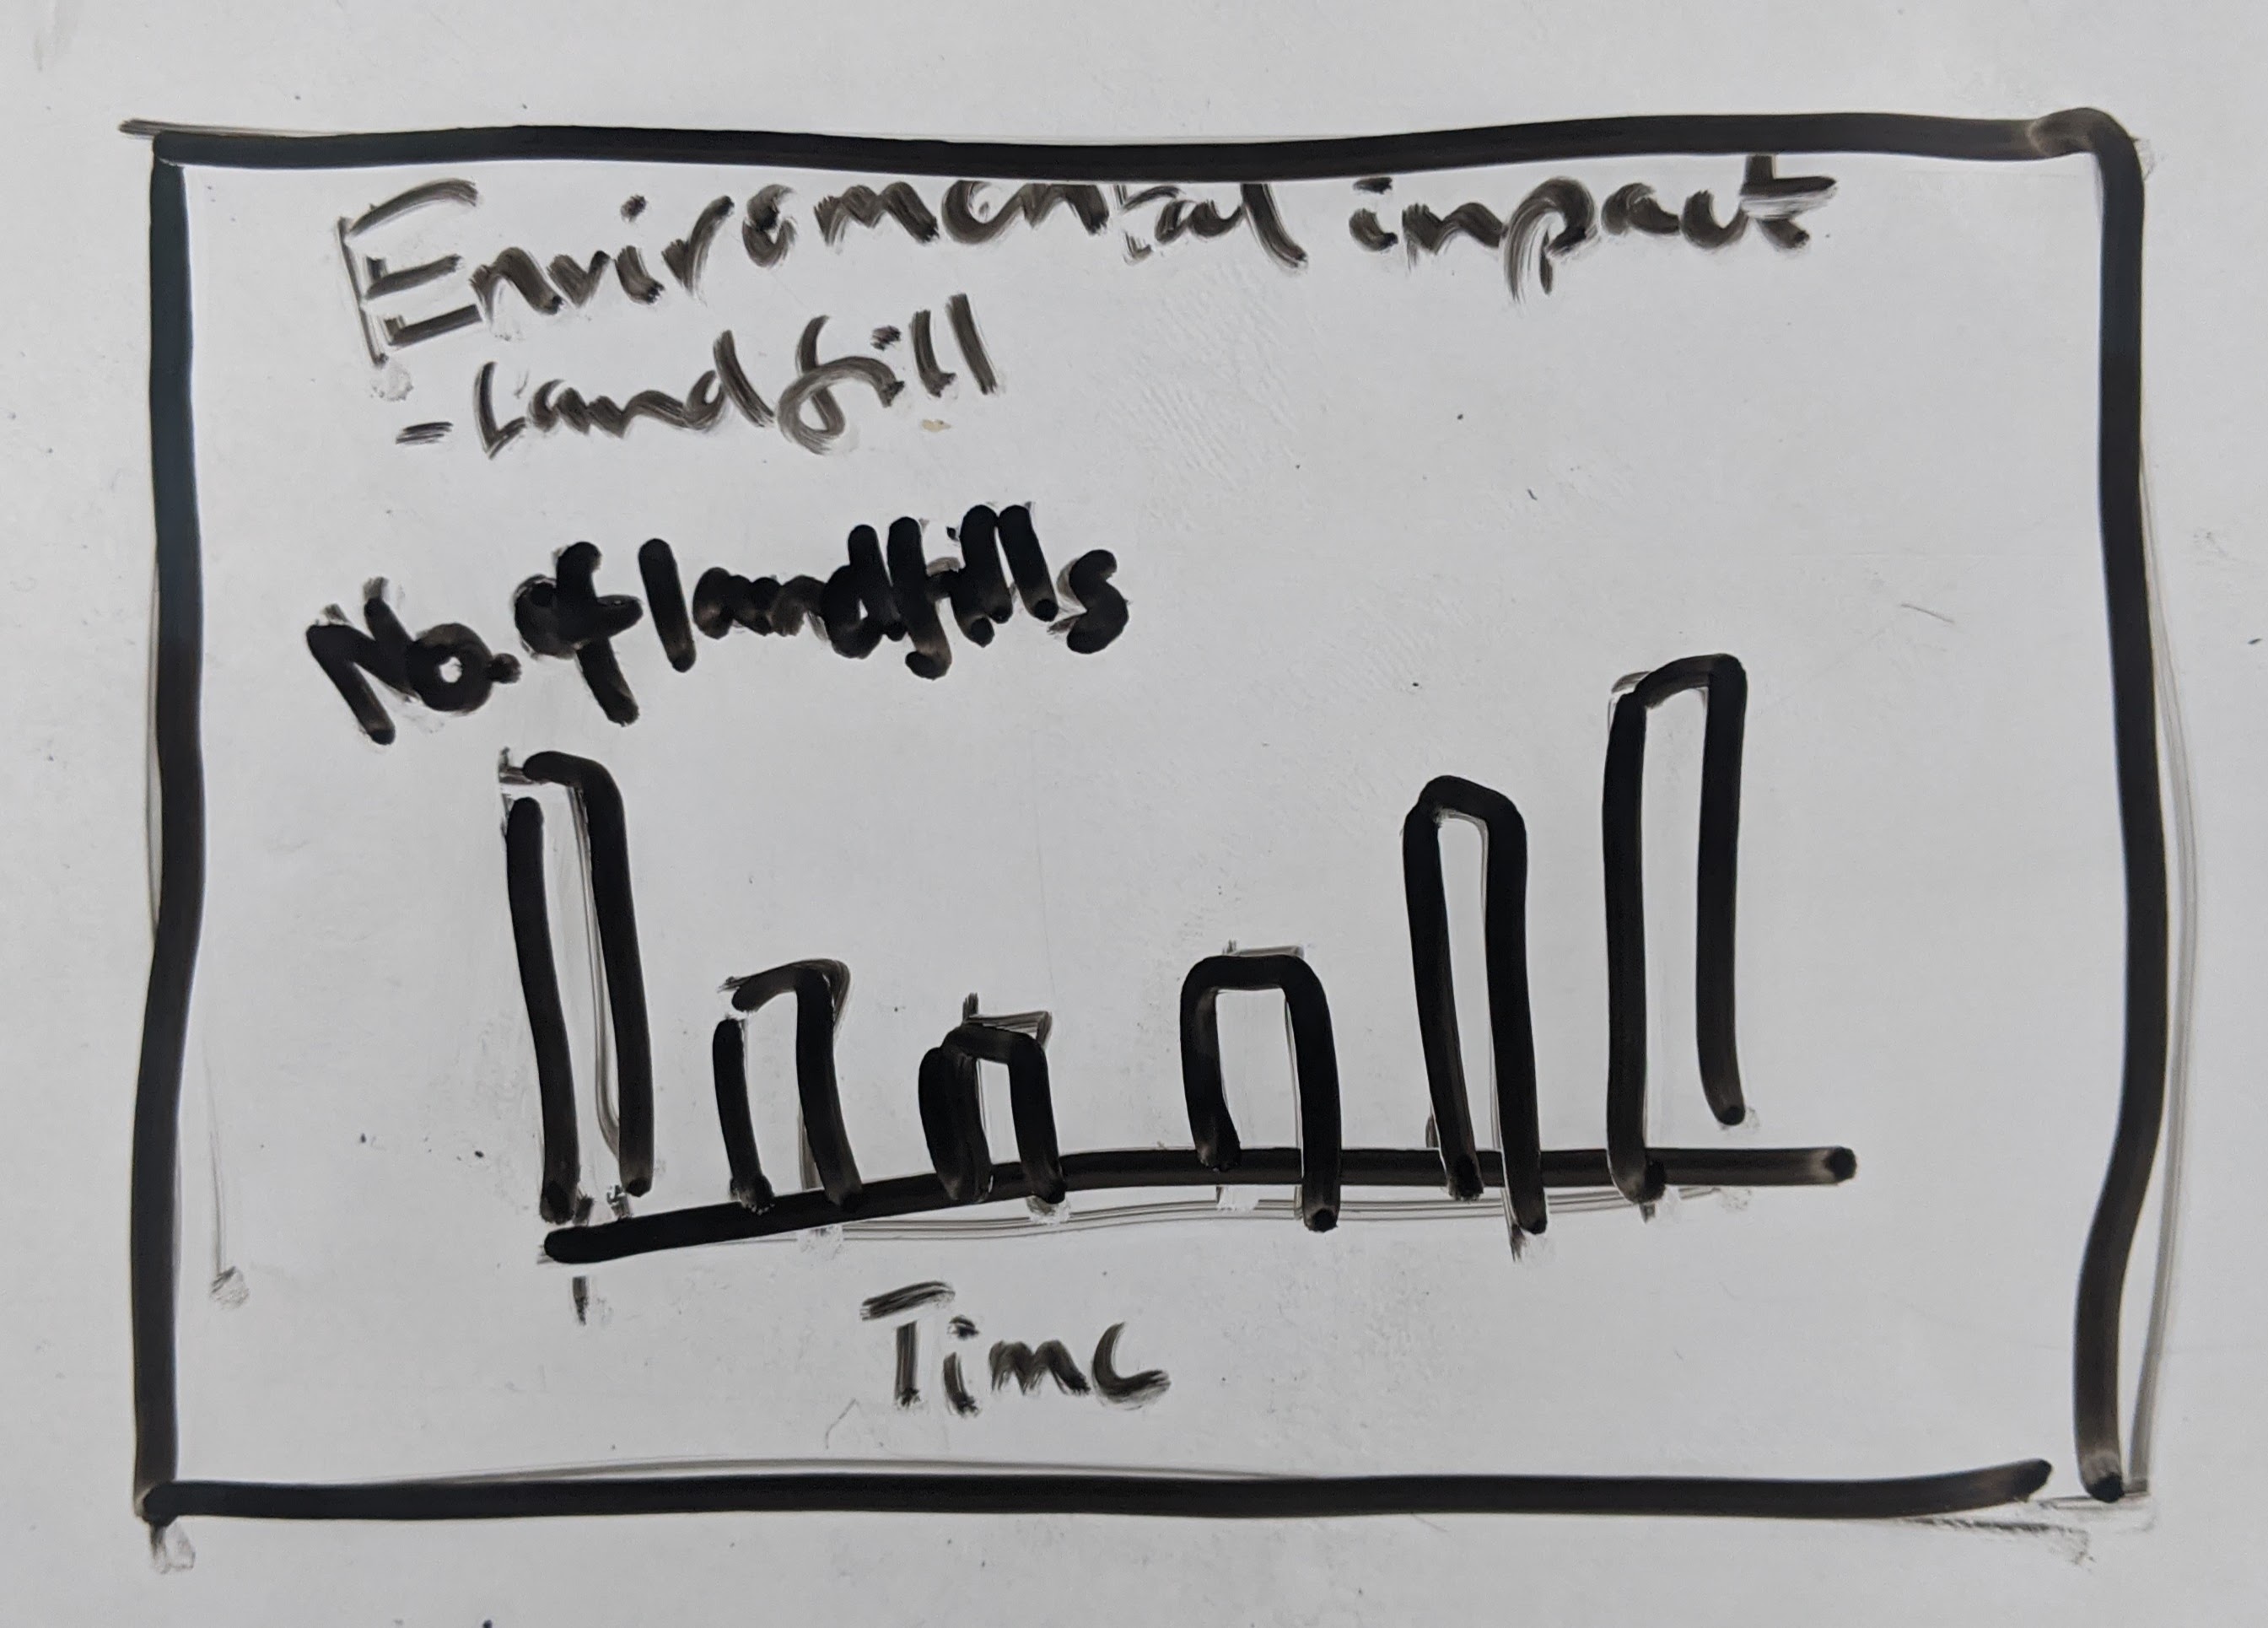 Enviromental impact
- Landfill
No. of landfills
Time